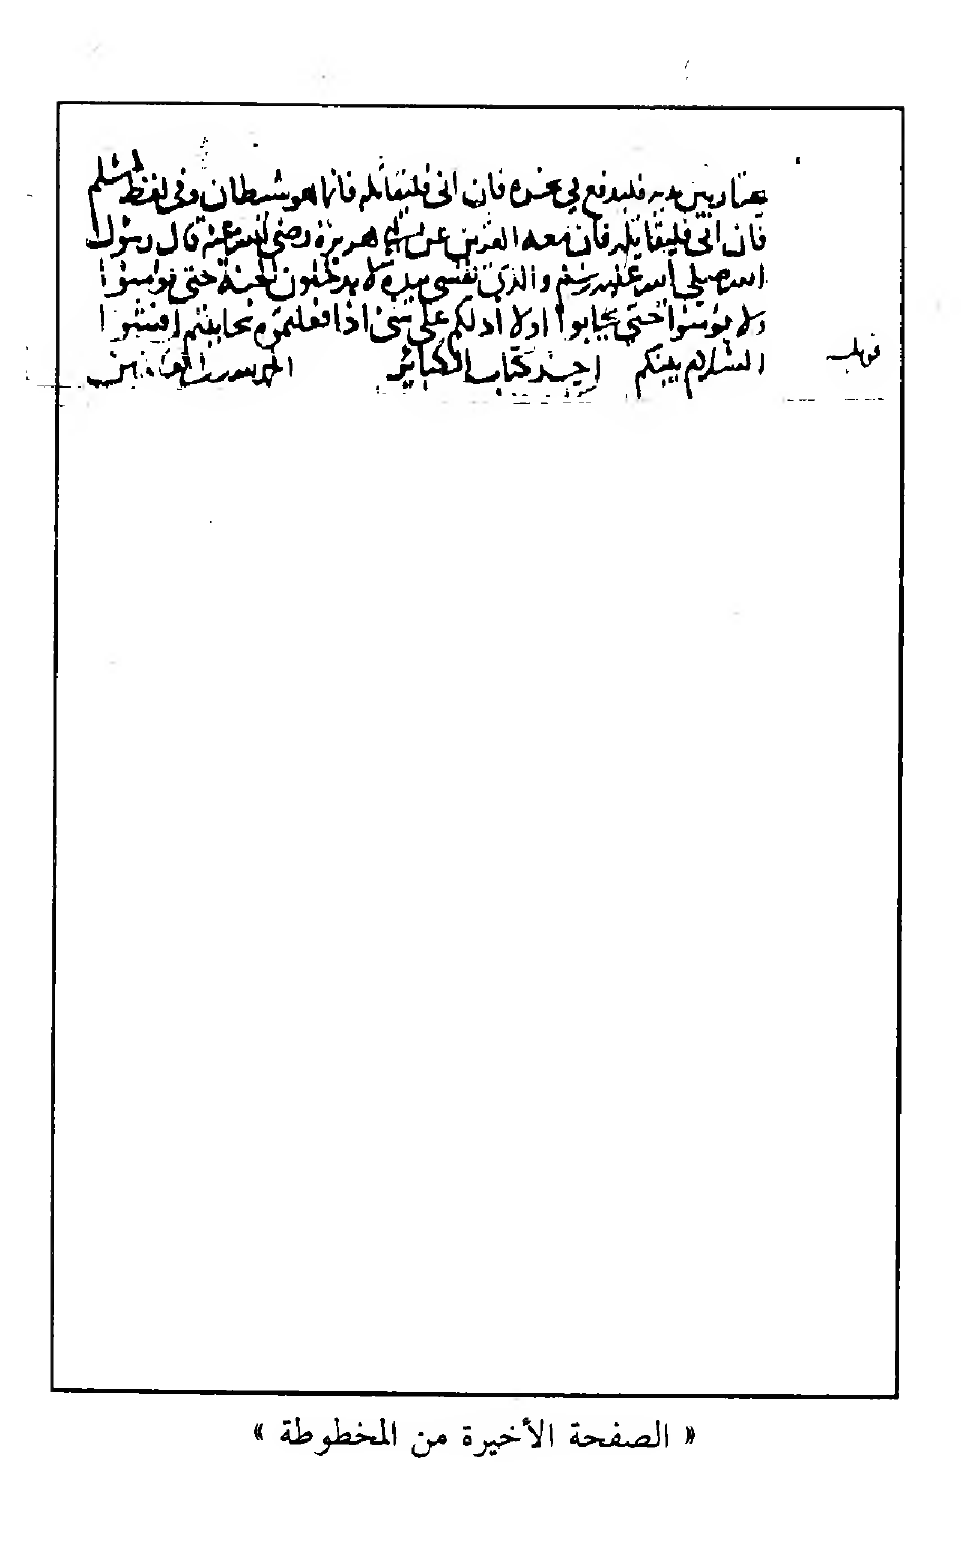 يجتاز بين يديه فليدفع في نحره فان ابى فليقاتله فانما هو شيطان وفي لفظ لمسلم
فان ابى فليقاتله فان معه القرين عن ابي هريرة رضي الله عنه قال رسول
الله صلى الله عليه وسلم والذي نفسي بيده لا يدخلون الجنة حتى تومنوا
ولا تومنوا حتى تحابوا اولا ادلكم على شئ اذا فعلتموه تحاببتم افشوا
السلام بينكم اخر كتاب الكبائر الحمد لله رب العالمين
قوبل
« الصفحة الأخيرة من المخطوطة »